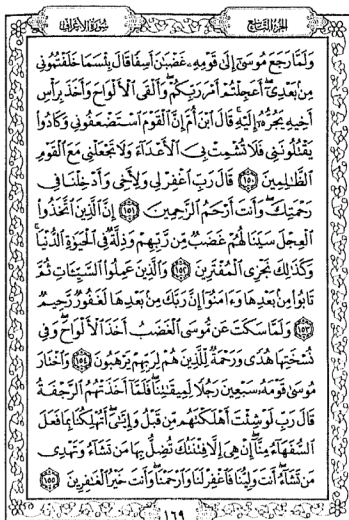 سورة الأعراف
الجزء التاسع
وَلَمَّا رَجَعَ مُوسَىٰٓ إِلَىٰ قَوْمِهِۦ غَضْبَٰنَ أَسِفًا قَالَ بِئْسَمَا خَلَفْتُمُونِى
مِنۢ بَعْدِىٓ ۖ أَعَجِلْتُمْ أَمْرَ رَبِّكُمْ ۖ وَأَلْقَى ٱلْأَلْوَاحَ وَأَخَذَ بِرَأْسِ
أَخِيهِ يَجُرُّهُۥٓ إِلَيْهِ ۚ قَالَ ٱبْنَ أُمَّ إِنَّ ٱلْقَوْمَ ٱسْتَضْعَفُونِى وَكَادُوا۟
يَقْتُلُونَنِى فَلَا تُشْمِتْ بِىَ ٱلْأَعْدَآءَ وَلَا تَجْعَلْنِى مَعَ ٱلْقَوْمِ
ٱلظَّٰلِمِينَ ١٥٠ قَالَ رَبِّ ٱغْفِرْ لِى وَلِأَخِى وَأَدْخِلْنَا فِى
رَحْمَتِكَ ۖ وَأَنتَ أَرْحَمُ ٱلرَّٰحِمِينَ ١٥١ إِنَّ ٱلَّذِينَ ٱتَّخَذُوا۟
ٱلْعِجْلَ سَيَنَالُهُمْ غَضَبٌ مِّن رَّبِّهِمْ وَذِلَّةٌ فِى ٱلْحَيَوٰةِ ٱلدُّنْيَا ۚ
وَكَذَٰلِكَ نَجْزِى ٱلْمُفْتَرِينَ ١٥٢ وَٱلَّذِينَ عَمِلُوا۟ ٱلسَّيِّـَٔاتِ ثُمَّ
تَابُوا۟ مِنۢ بَعْدِهَا وَءَامَنُوٓا۟ إِنَّ رَبَّكَ مِنۢ بَعْدِهَا لَغَفُورٌ رَّحِيمٌ
١٥٣ وَلَمَّا سَكَتَ عَن مُّوسَى ٱلْغَضَبُ أَخَذَ ٱلْأَلْوَاحَ ۖ وَفِى
نُسْخَتِهَا هُدًى وَرَحْمَةٌ لِّلَّذِينَ هُمْ لِرَبِّهِمْ يَرْهَبُونَ ١٥٤ وَٱخْتَارَ
مُوسَىٰ قَوْمَهُۥ سَبْعِينَ رَجُلًا لِّمِيقَٰتِنَا ۖ فَلَمَّآ أَخَذَتْهُمُ ٱلرَّجْفَةُ
قَالَ رَبِّ لَوْ شِئْتَ أَهْلَكْتَهُم مِّن قَبْلُ وَإِيَّٰىَ ۖ أَتُهْلِكُنَا بِمَا فَعَلَ
ٱلسُّفَهَآءُ مِنَّآ ۖ إِنْ هِىَ إِلَّا فِتْنَتُكَ تُضِلُّ بِهَا مَن تَشَآءُ وَتَهْدِى
مَن تَشَآءُ ۖ أَنتَ وَلِيُّنَا فَٱغْفِرْ لَنَا وَٱرْحَمْنَا ۖ وَأَنتَ خَيْرُ ٱلْغَٰفِرِينَ ١٥٥
١٦٩